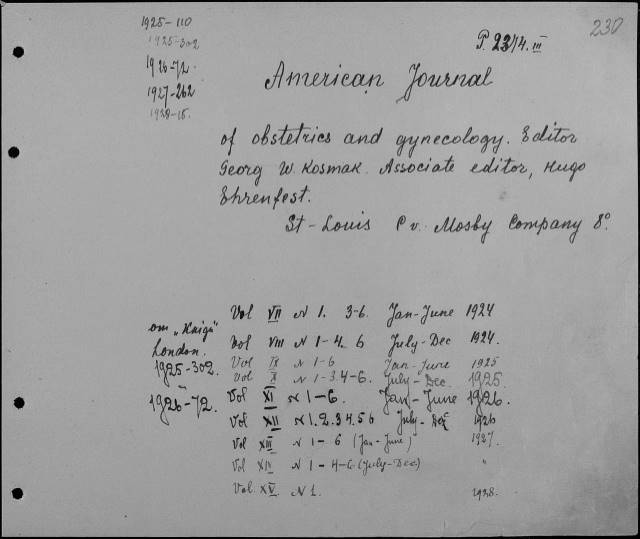 1925-110
1925-302
1926-72.
1927-262
1928-15.
P. 23/4. III
230
American Journal
of obstetrics and gynecology. Editor
Georg W. Kosmak. Associate editor, Hugo
Ehrenfest.
St-Louis C v. Mosby Company 8°
Vol VII N 1. 3-6. Jan-June 1924
om „Kniga“
London.
1925-302.
1926-72.
Vol VIII N 1-4. 6 July-Dec 1924.
Vol IX N 1-6 Jan-June 1925
Vol X N 1-3.4-6. July-Dec. 1925.
Vol XI N 1-6. Jan-June 1926.
Vol XII N 1.2.3.4.5 6 July-Dec 1926
Vol XIII N 1-6 (Jan-June) 1927.
Vol XIV N 1-4-6 (July-Dec) "
Vol. XV N 1. 1928.